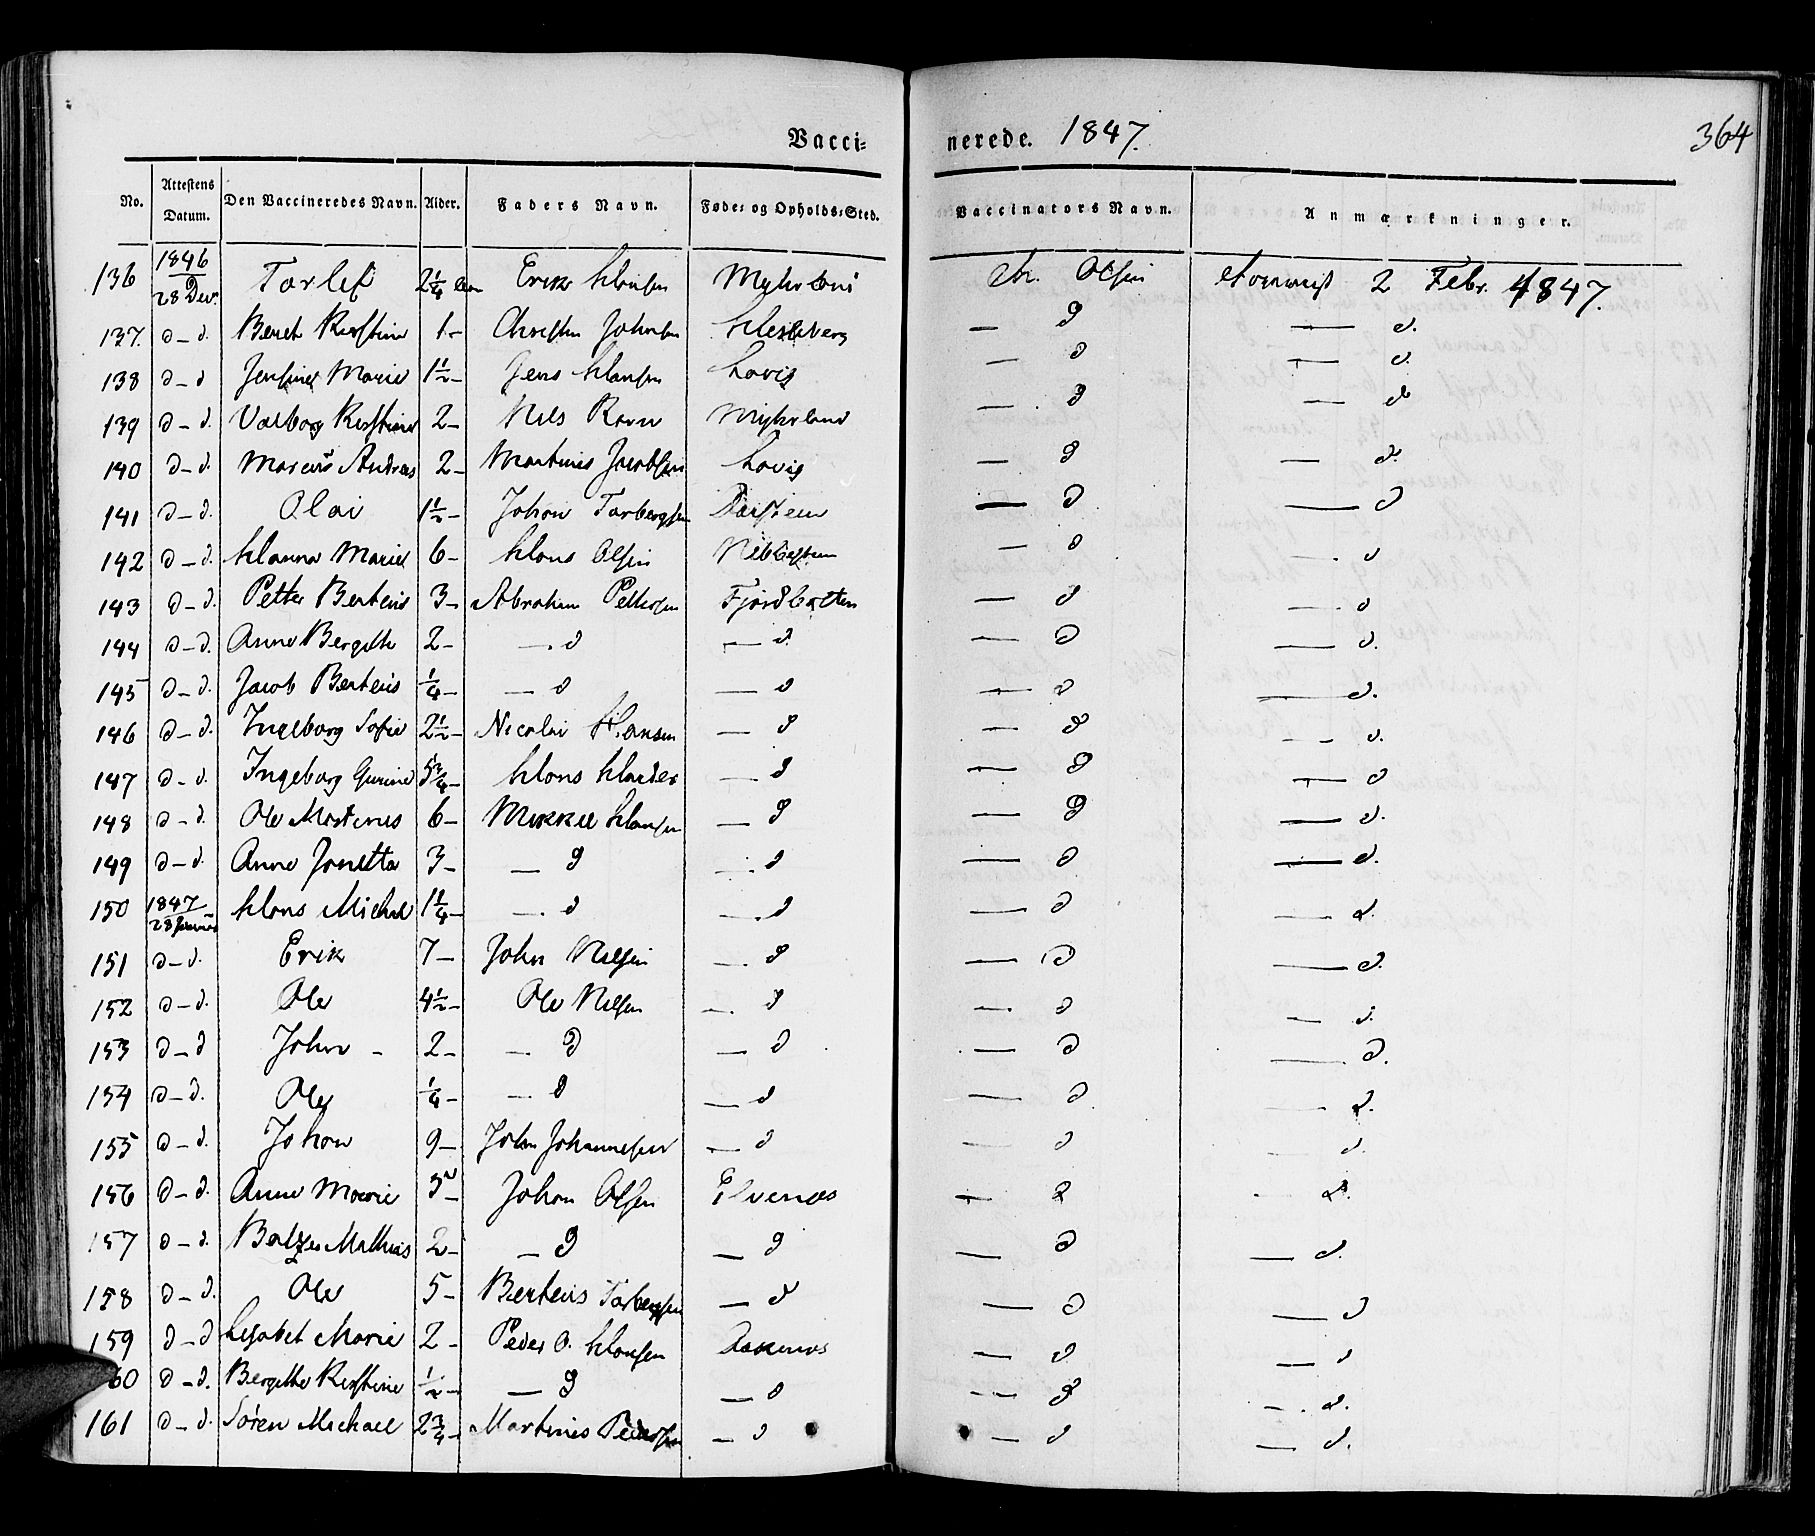 Vacci= nerede. 1847. 364
No. Attestens Datum. Den Vaccineredes Navn. Alder. Faders Navn. Føde= og Opholds=Sted. Vaccinators Navn. Anmærkninger.
136 1846 28 Dec. Torlef 2 1/4 Erik Hansen Myhrland Olsen 2 Febr. 1847.
137. d – d. Beret Kirstine 1 – Christen Johnsen Hessberg — d — d.
138 d – d Jensine Marie 1 1/2 – Jens Hansen Havig — d — d.
139 d – d. Valborg Kirstine 2 – Nils Ravn Myhrland — d — d
140 d – d. Marcus Andreas 2 – Martinus Jacobsen Havig — d — d.
141 d – d. Olai 1 1/2 – Johan Torbergsen — d — d
142 d – d. Hanna Marie 6 – Hans Olsen — d — d
143 d – d. Petter Berteus 3 – Abraham Pettersen Fjordbotten — d — d
144 d – d. Anne Bergethe 2 – — d — d. — d — d.
145 d – d. Jacob Berteus 1/4 – — d — d — d — d.
146 d – d. Ingeborg Sofie 2 1/2 – Nicolai Hansen — d — d — d.
147 d – d. Ingeborg Gurine 5 3/4 – Hans — d — d — d
148 d – d. Ole Martinus 6 – Mikkel Hansen — d — d — d.
149 d – d. Anne Jonetta 3 – — d — d — d — d.
150 1847 28 Januar Hans Michal 1 1/4 – — d — d — d — d.
151 d – d. Erik 7 – John Nilsen — d — d — d.
152 d – d. Ole 4 1/2 – Ole Nilsen — d — d — d.
153 d – d John – 2 – — d — d — d — d.
154 d – d. Ole 1/4 – — d — d — d — d.
155 d – d. Johan 9 – John Johannesen — d — d — d.
156 d – d. Anne Marie 3 – Johan Olsen Elvenæs — d — d.
157 d – d. Balzer Mathias 2 – — d — d — d — d.
158 d – d. Ole 5 – Berteus Torbergsen — d — d — d
159 d – d Lisabet Marie 2 – Peder O. Hansen — d — d
60 d – d. Bergethe Kirstine 1/2 – — d — d — d — d.
161 d – d. Søren Michael 2 3/4 – Martinus Pedersen — d — d — d.